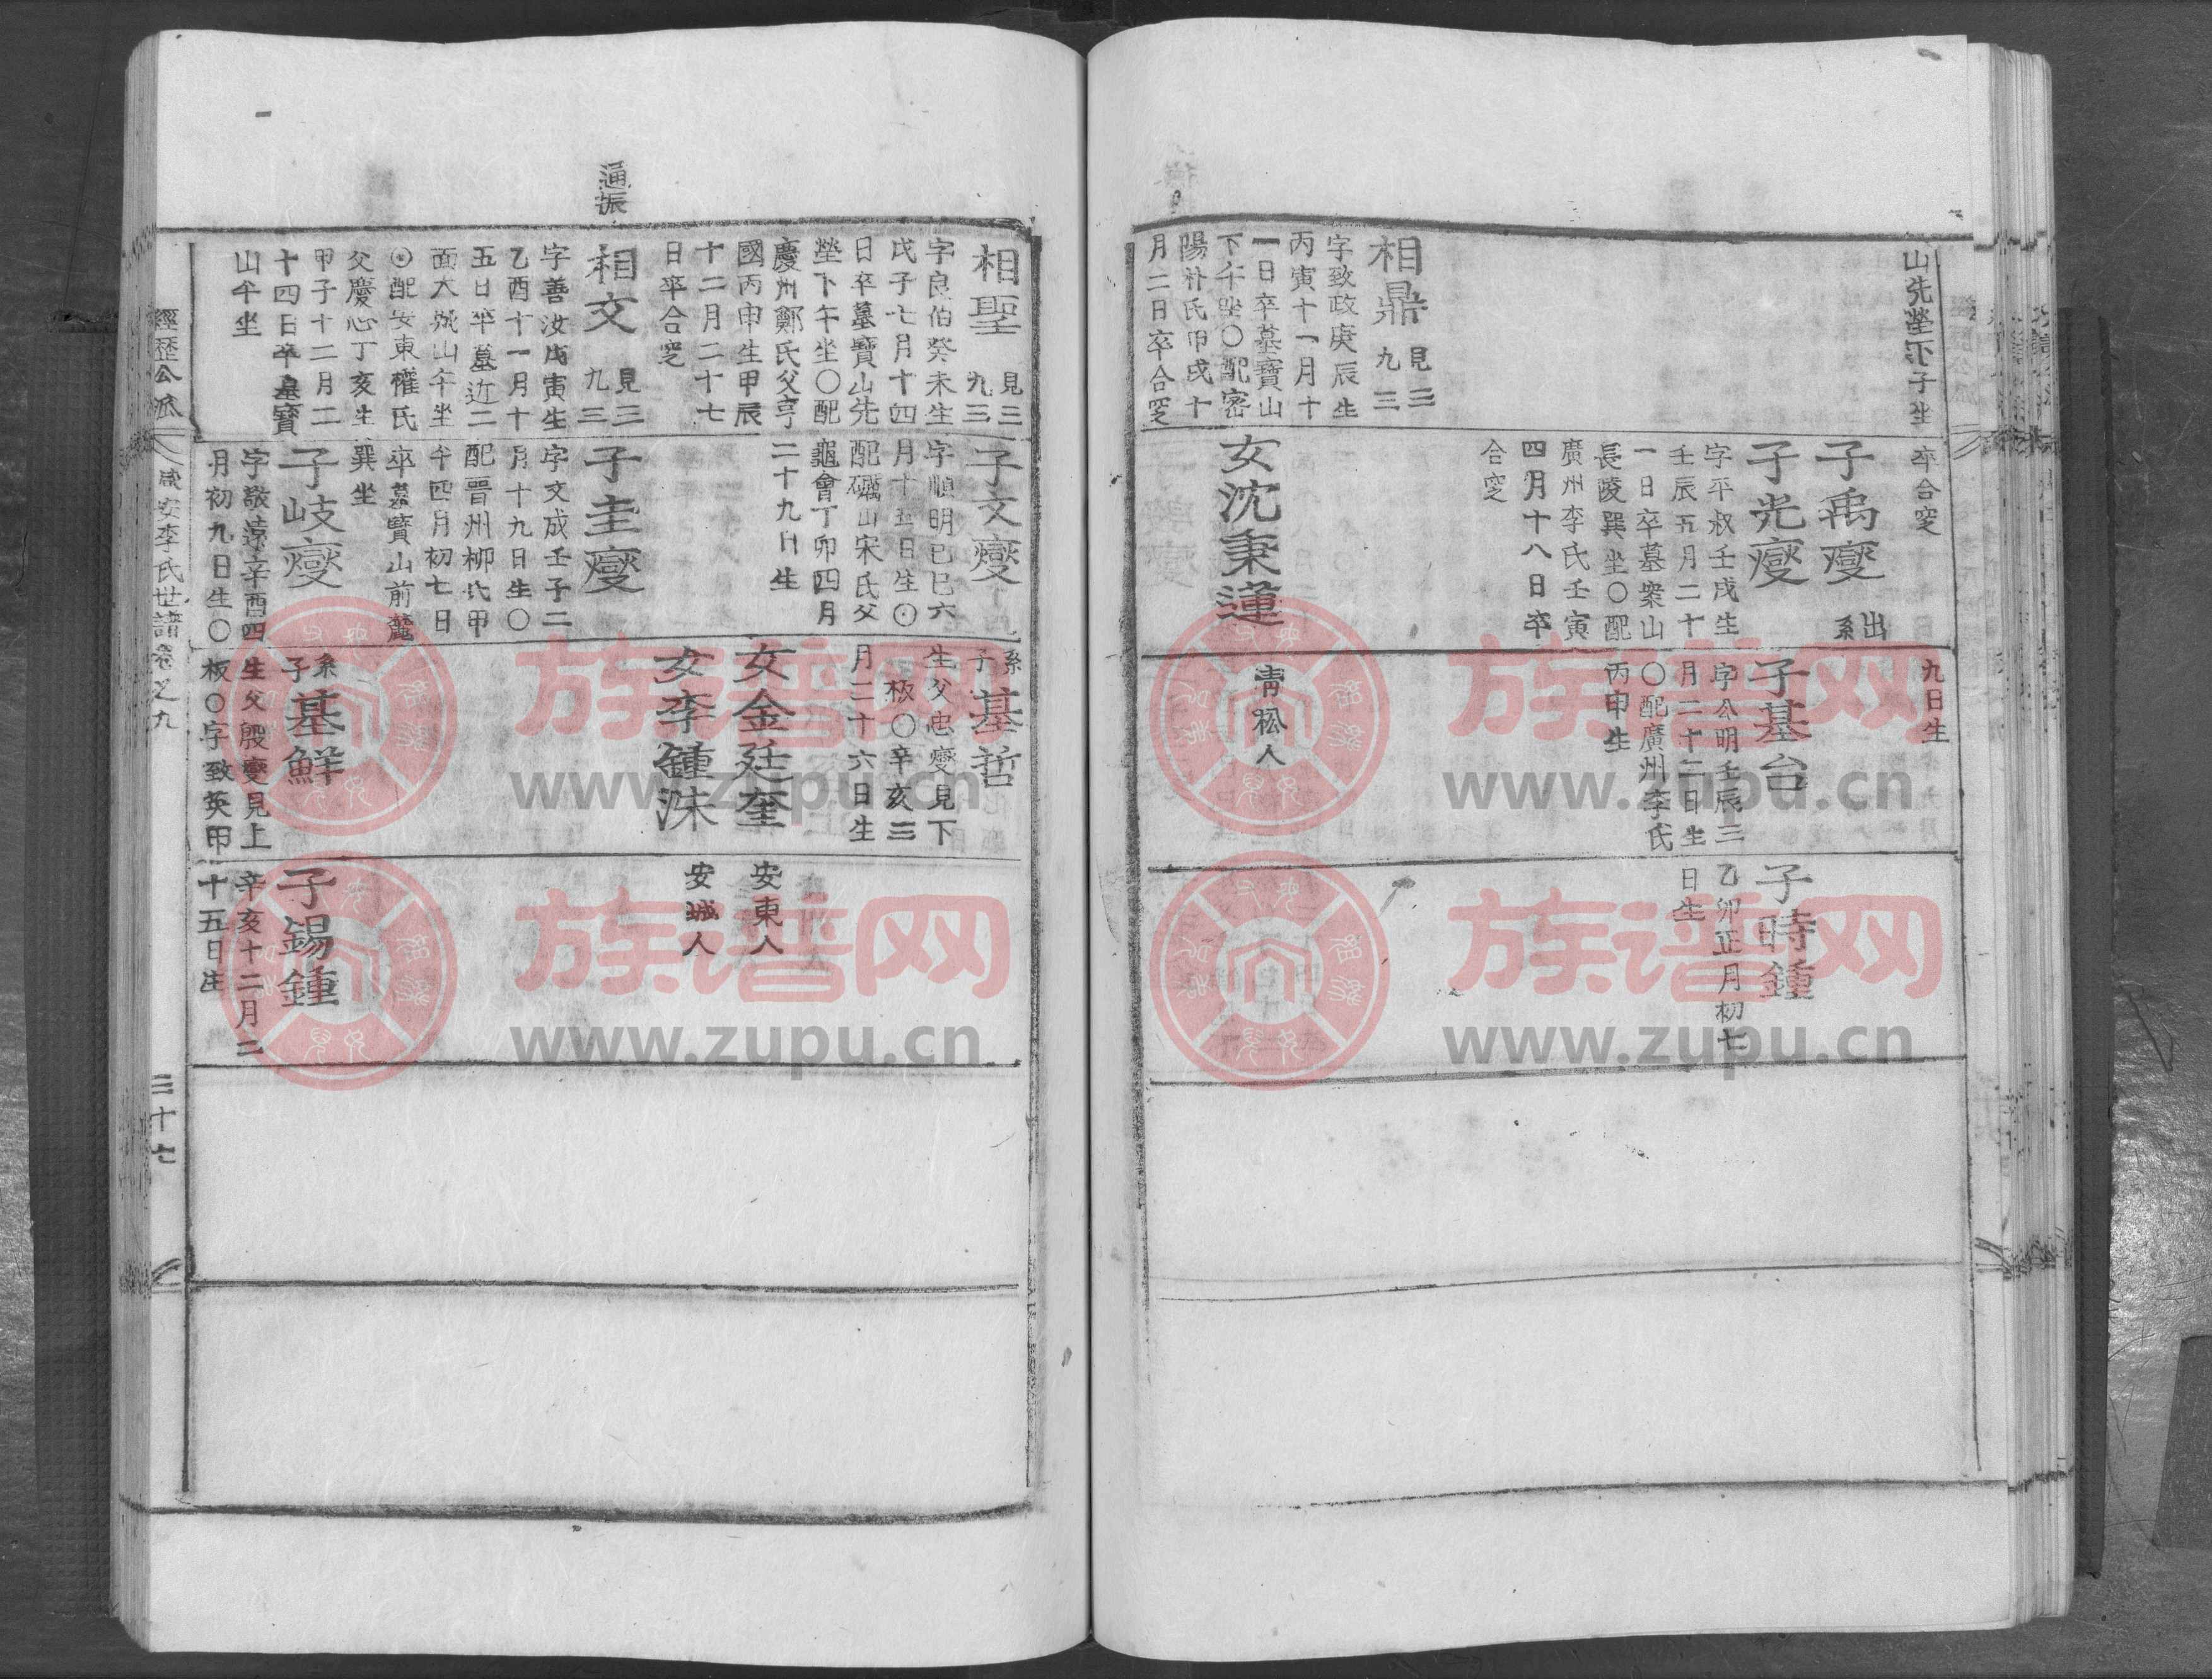 山先塋下子坐
相鼎 見三 九三
字致政庚辰生
丙寅十一月十
一日卒墓寶山
下午坐〇配密
陽朴氏甲戌十
月二日卒合窆
卒合窆
子禹燮 出系
子光燮
字平叔壬戌生
壬辰五月二十
一日卒墓衆山
長陵巽坐〇配
廣州李氏壬寅
四月十八日卒
合窆
女沈秉蓮
九日生
子基台
字公明壬辰三
月二十二日生
〇配廣州李氏
丙申生
靑松人
子時鍾
乙卯正月初七
日生
通振
相聖 見三 九三
字良伯癸未生
戊子七月十四
日卒墓寶山先
塋下午坐〇配
慶州鄭氏父亨
國丙申生甲辰
十二月二十七
日卒合窆
相文 見三 九三
字善汝戊寅生
乙酉十一月十
五日卒墓近二
面大 山午坐
⊙配安東權氏
父慶心丁亥生
甲子十二月二
十四日卒墓寶
山午坐
子文燮
字順明己巳六
月十五日生⊙
配礪山宋氏父
龜會丁卯四月
二十九日生
子圭燮
字文成壬子二
月十九日生〇
配晋州柳氏甲
午四月初七日
卒墓寶山前麓
巽坐
子岐燮
字敬遠辛酉四
月初九日生〇
系子基哲
生父忠燮見下
板〇辛亥三
月二十六日生
女金廷奎
女李鍾洙
系子基鮮
生父殷燮見上
板〇字致英甲
安東人
安城人
子錫鍾
辛亥十二月二
十五日生
經歷公派
咸安李氏世譜卷之九
三十七
族谱网
www.zupu.cn
族谱网
www.zupu.cn
族谱网
www.zupu.cn
族谱网
www.zupu.cn